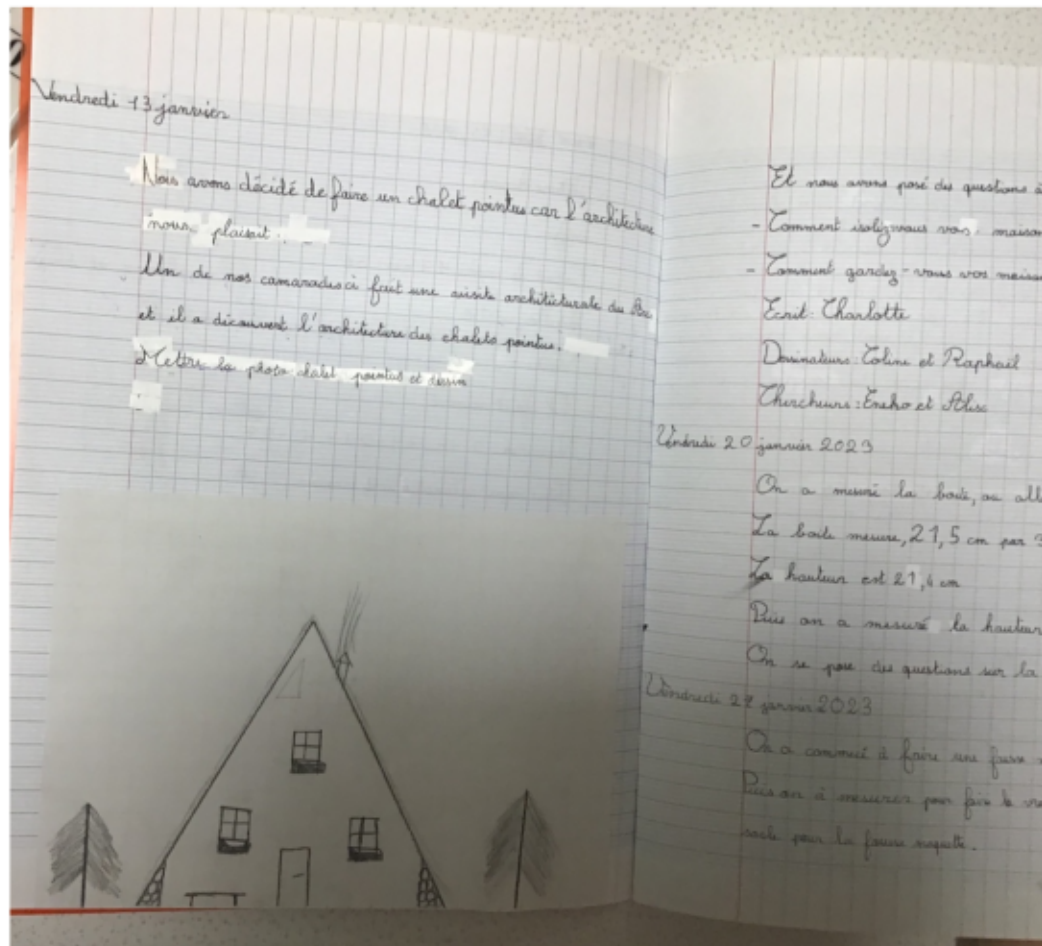 Vendredi 13 janvier
Nous avons décidé de faire un chalet pointus car l'architecture
nous plaisait.
Un de nos camarades a fait une visite architecturale du
et il a découvert l'architecture des chalets pointus.
Mettre la photo chalet pointus et dessin
Et nous avons posé des questions à
- Comment vous vos maison
- Comment gardez-vous vos maison
Ecrit: Charlotte
Dessinateurs: Coline et Raphaël
Chercheurs: Eneko et
Vendredi 20 janvier 2023
On a mesuré la boite, on
La boite mesure, 21,5 cm par
La hauteur est 21,4 cm
Puis on a mesuré la hauteur
On se pose des questions sur la
Vendredi janvier 2023
On a commecé à faire une fausse
Puis on à mesurer pour faire le
socle pour la fausse maquette.